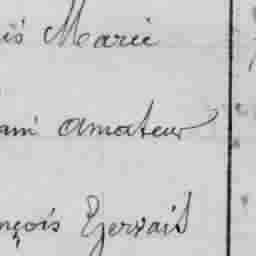 is Marie
ami Amateur
nçois Gervais